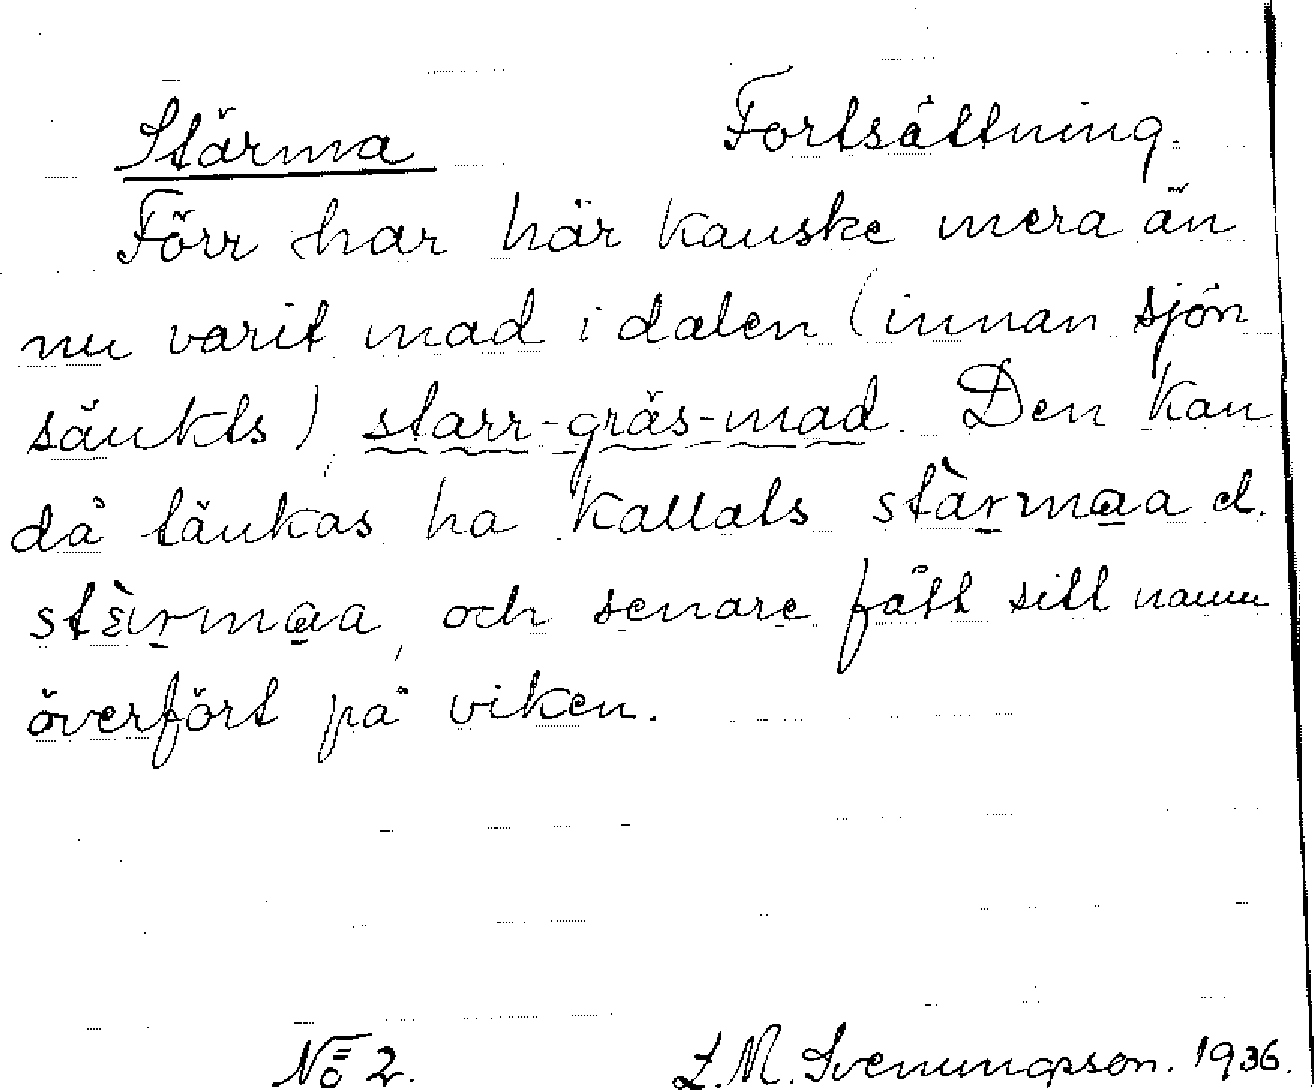 Stärma Fortsättning.
Förr har här kanske mera än
nu varit mad i dalen (innan sjön
sänkts), starr-gräs-mad. Den kan
då tänkas ha kallats stàrmaa el.
stɛ̀rmaa, och senare fått sitt namn
överfört på viken.
No 2. L.M. Svenungsson. 1936.